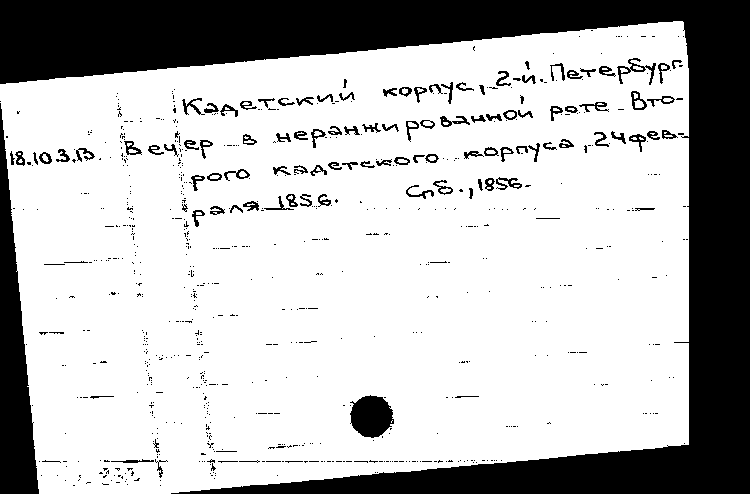 Кадетский корпус, 2-й. Петербург.
18.10.3.13. Вечер в неранжированной роте Вто-
рого кадетского корпуса, 24 фев-
раля 1856. Спб., 1856.